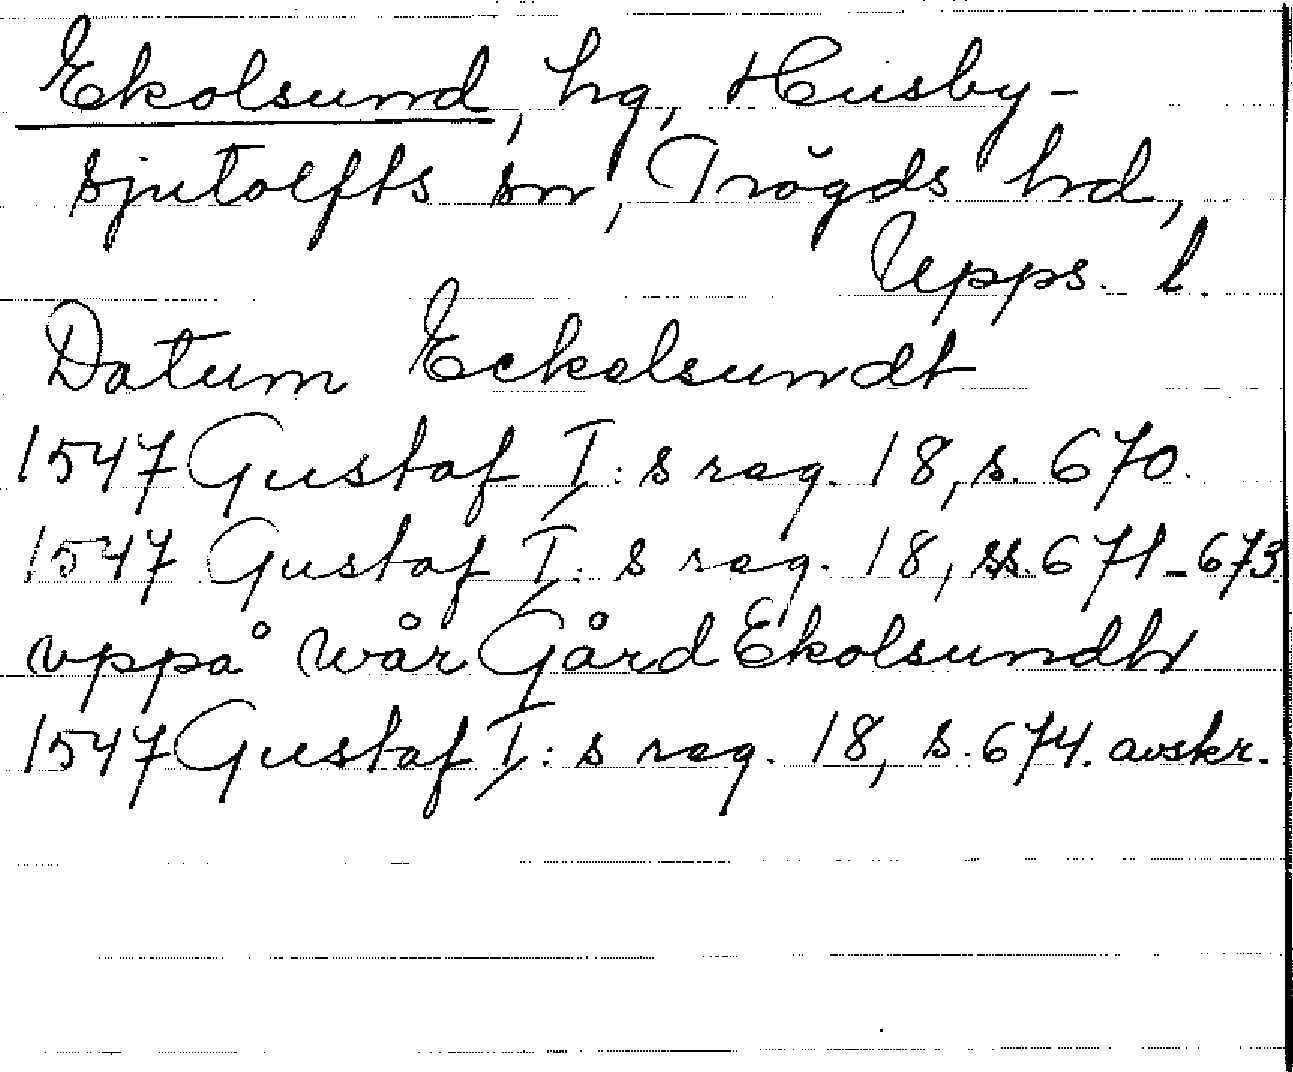 Ekolsund, hg, Husby-
sjutolfts sn, Trögds hd,
Upps. l.
Datum Eckolsundt
1547 Gustaf I: s reg. 18, s. 670.
1547 Gustaf I: s reg. 18, ss. 671-673
vppå wår Gård Ekolsundh
1547 Gustaf I: s reg. 18, s. 674. avskr.